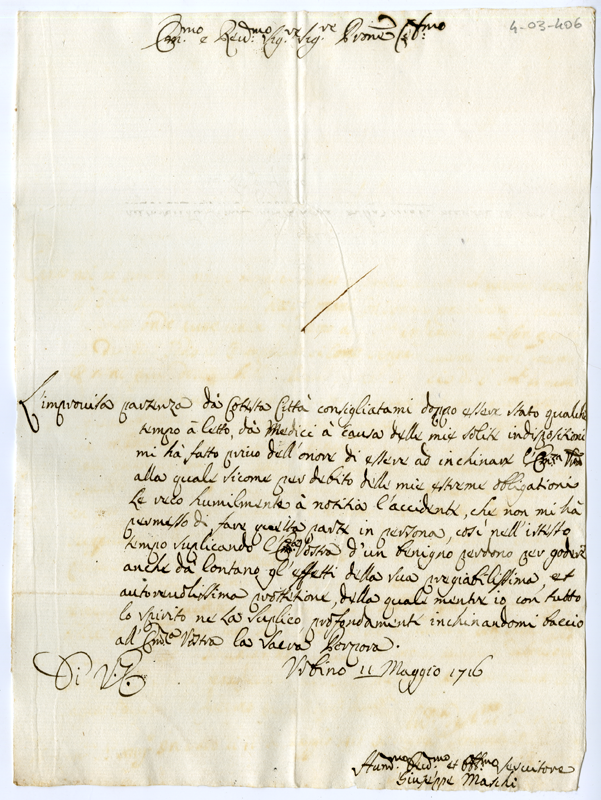 Em.mo e Rev.mo Sig.re Sig.re Prone Col.mo
4-03-406
L'improvisa partenza da cotesta Città consigliatami doppo esser stato qualche
tempo à letto, dà Medici à causa delle mie solite indisposizioni
mi hà fatto privo dell'onore di essere ad inchinare l'Em.za V.ra
alla quale sicome per debito delle mie estreme obligationi
le reco humilmente à notitia l'accidente, che non mi hà
permesso di fare questa parte in persona, così nell'istesso
tempo suplicando l'Em.za Vostra d'un benigno perdono per godere
anche dà lontano gl'effetti della sua pregiabilissima, et
autorevolissima protetione, della quale mentre io con tutto
lo spirito ne la suplico, profondamente inchinandomi baccio
all'Em.za Vostra la sacra Porpora.
Urbino 11 Maggio 1716
Di V. E.
Hum.mo Dev.mo et Obb.mo servitore
Giuseppe Maschi